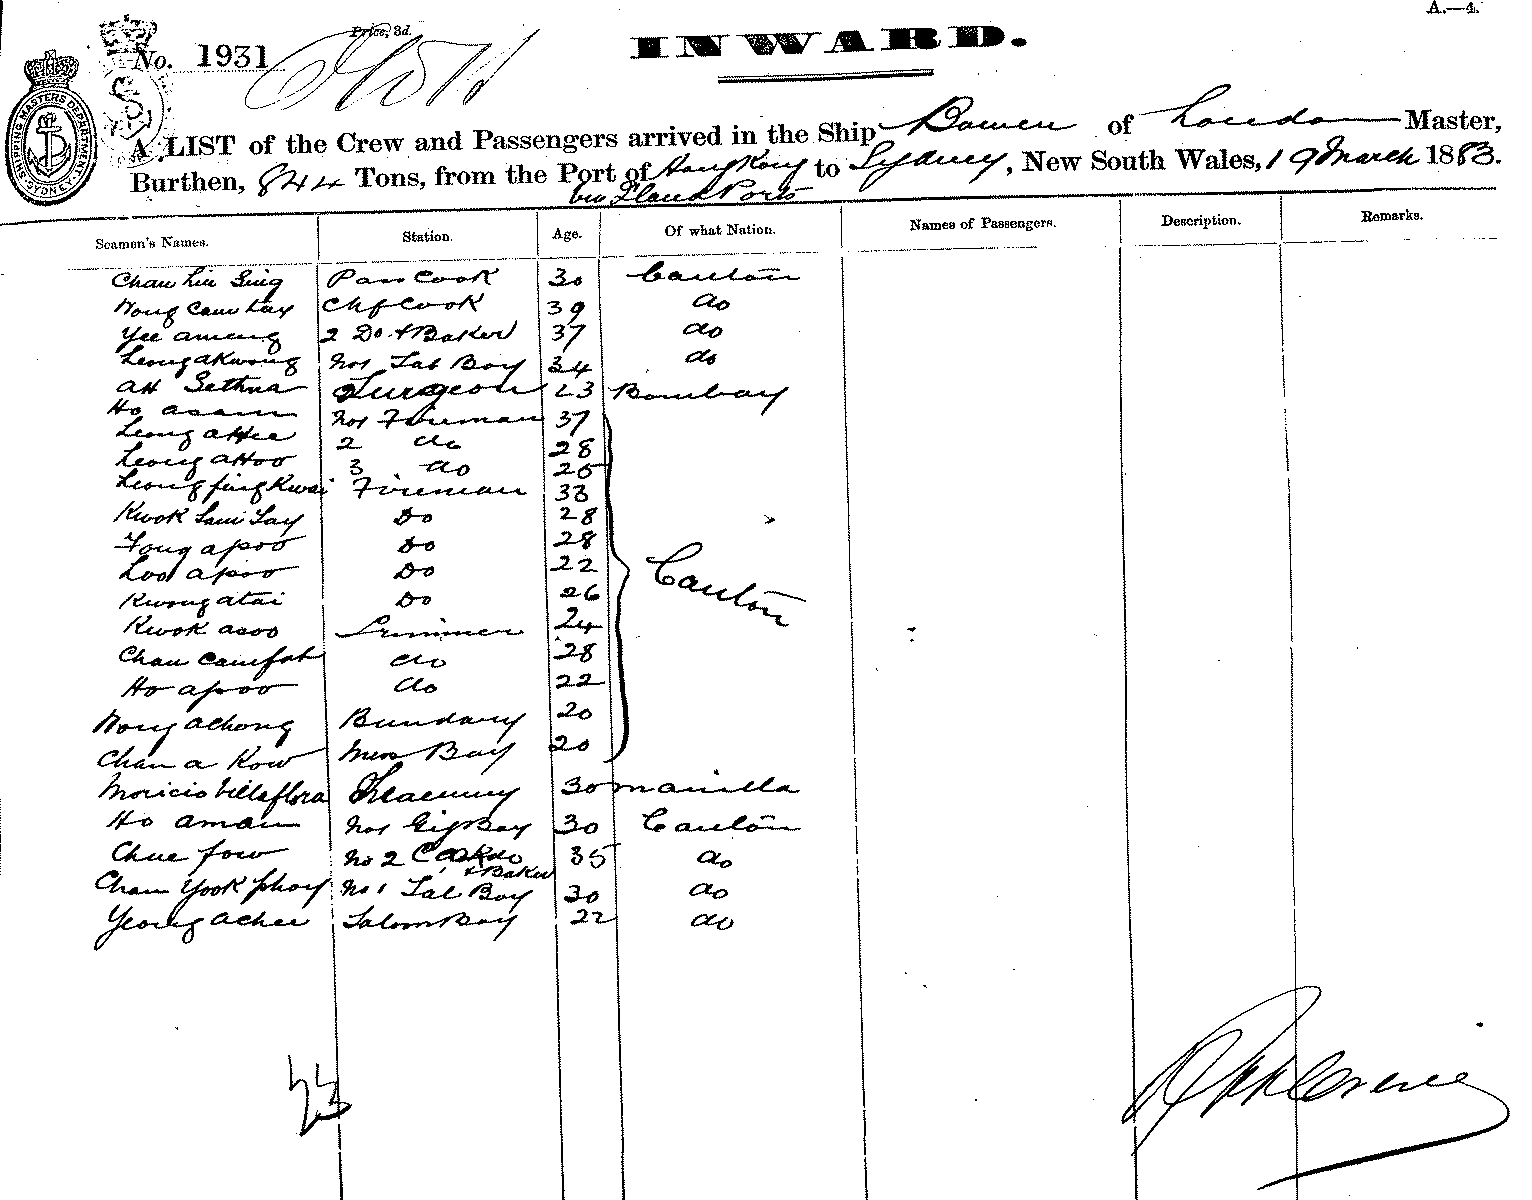 A.—4.
Price, 3d.
No. 1931
INWARD.
SHIPPING MASTERS DEPARTMENT SYDNEY
A LIST of the Crew and Passengers arrived in the Ship Bowen of London Master,
Burthen, 844 Tons, from the Port of Hong Kong to Sydney, New South Wales, 19 March 1883.
via Island Ports
Seamen's Names. Station. Age. Of what Nation. Names of Passengers. Description. Remarks.
Chau Lin Sing Pass Cook 30 Canton
Wong Cam Lax Chf Cook 39 do
Yee ameng 2 Do & Baker 37 do
Leong akwong No1 Sal Boy 34 do
AH Sethna Surgeon 23 Bombay
Ho asam No1 Fireman 37
Leong aHee 2 do 28
Leong aHoo 3 do 25
Leong fing Kwai Fireman 33
Kwok Sam Tay Do 28
Fong apoo Do 28
Canton
Loo apoo Do 22
Kwong atai Do 26
Kwok asoo Trimmer 24
Chau camfat do 28
Ho apoo do 22
Wong achong Bundary 20
Chan a Kow Mess Boy 20
Moricio Villaflora 30 manilla
Ho aman No1 Gig Boy 30 Canton
Chue fow No 2 Cook do 35 do
& Baker
Chan Yook phoy No 1 Sal Boy 30 do
Yeong achee Saloon Boy 22 do
23